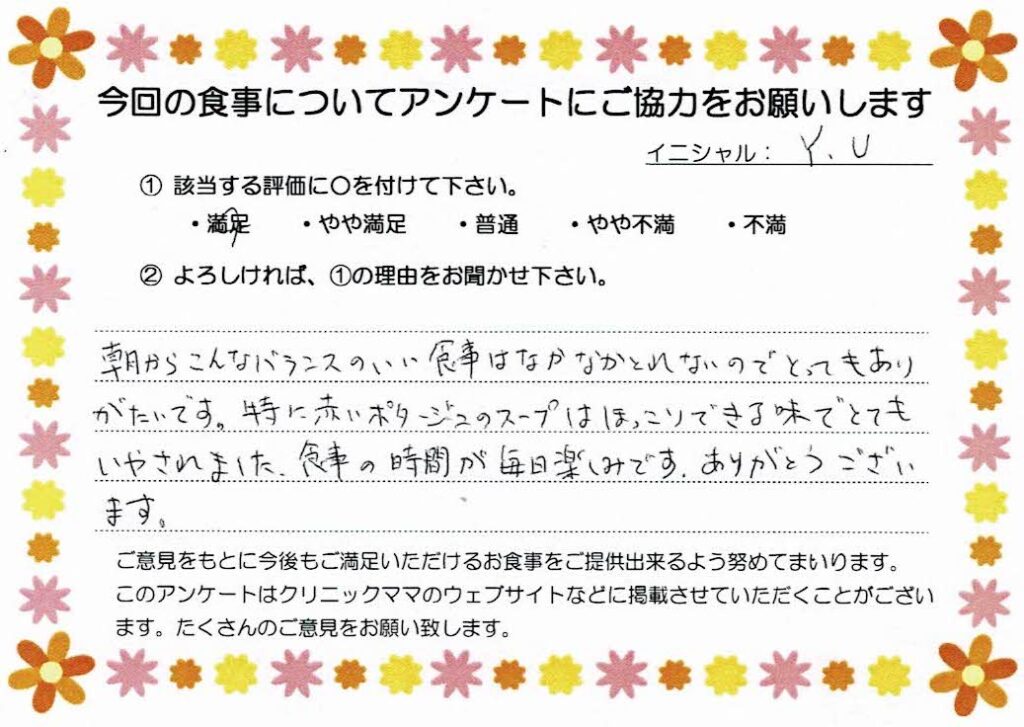 今回の食事についてアンケートにご協力をお願いします
イニシャル： Y. U
① 該当する評価に〇を付けて下さい。
・満足 ・やや満足 ・普通 ・やや不満 ・不満
② よろしければ、①の理由をお聞かせ下さい。
朝からこんなバランスのいい食事はなかなかとれないのでとってもあり
がたいです。特に赤いポタージュのスープはほっこりできる味でとても
いやされました。食事の時間が毎日楽しみです。ありがとうござい
ます。
ご意見をもとに今後もご満足いただけるお食事をご提供出来るよう努めてまいります。
このアンケートはクリニックママのウェブサイトなどに掲載させていただくことがござい
ます。たくさんのご意見をお願い致します。